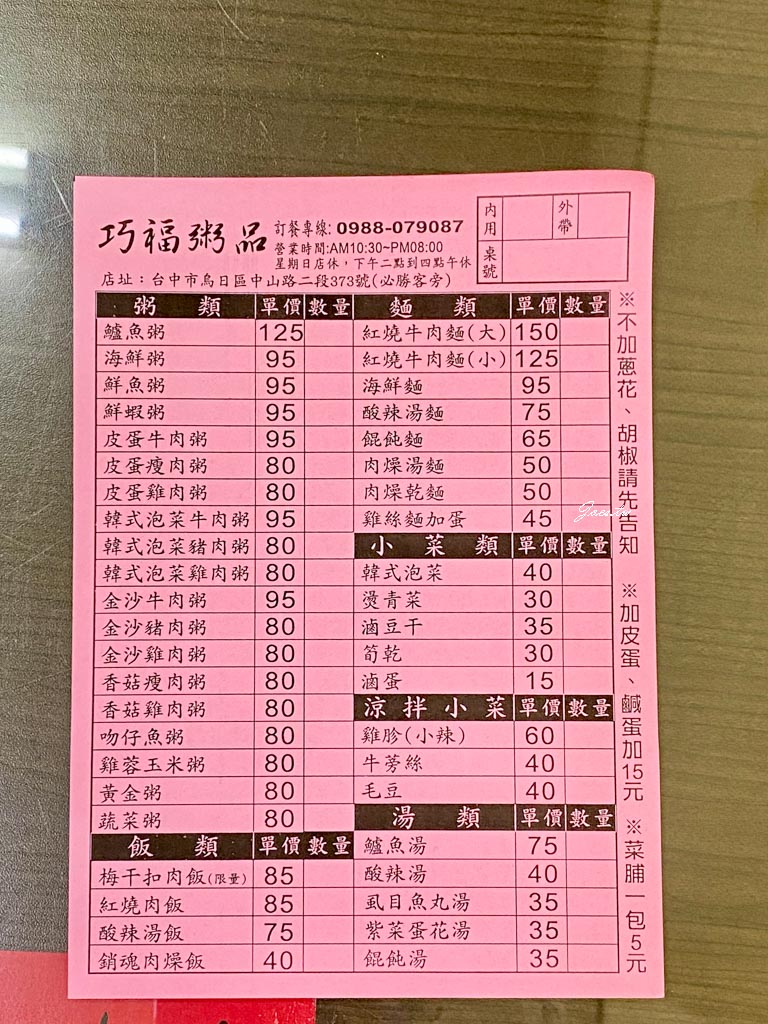 巧福粥品
訂餐專線: 0988-079087
營業時間:AM10:30~PM08:00
星期日店休,下午二點到四點午休
店址:台中市烏日區中山路二段373號(必勝客旁)
內用
外帶
桌號
粥類 單價 數量
鱸魚粥 125
海鮮粥 95
鮮魚粥 95
鮮蝦粥 95
皮蛋牛肉粥 95
皮蛋瘦肉粥 80
皮蛋雞肉粥 80
韓式泡菜牛肉粥 95
韓式泡菜豬肉粥 80
韓式泡菜雞肉粥 80
金沙牛肉粥 95
金沙豬肉粥 80
金沙雞肉粥 80
香菇瘦肉粥 80
香菇雞肉粥 80
吻仔魚粥 80
雞蓉玉米粥 80
黃金粥 80
蔬菜粥 80
飯類 單價 數量
梅干扣肉飯(限量) 85
紅燒肉飯 85
酸辣湯飯 75
銷魂肉燥飯 40
麵類 單價 數量
紅燒牛肉麵(大) 150
紅燒牛肉麵(小) 125
海鮮麵 95
酸辣湯麵 75
餛飩麵 65
肉燥湯麵 50
肉燥乾麵 50
雞絲麵加蛋 45
小菜類 單價 數量
韓式泡菜 40
燙青菜 30
滷豆干 35
筍乾 30
滷蛋 15
涼拌小菜 單價 數量
雞胗(小辣) 60
牛蒡絲 40
毛豆 40
湯類 單價 數量
鱸魚湯 75
酸辣湯 40
虱目魚丸湯 35
紫菜蛋花湯 35
餛飩湯 35
※不加蔥花、胡椒請先告知 ※加皮蛋、鹹蛋加15元 ※菜脯一包5元